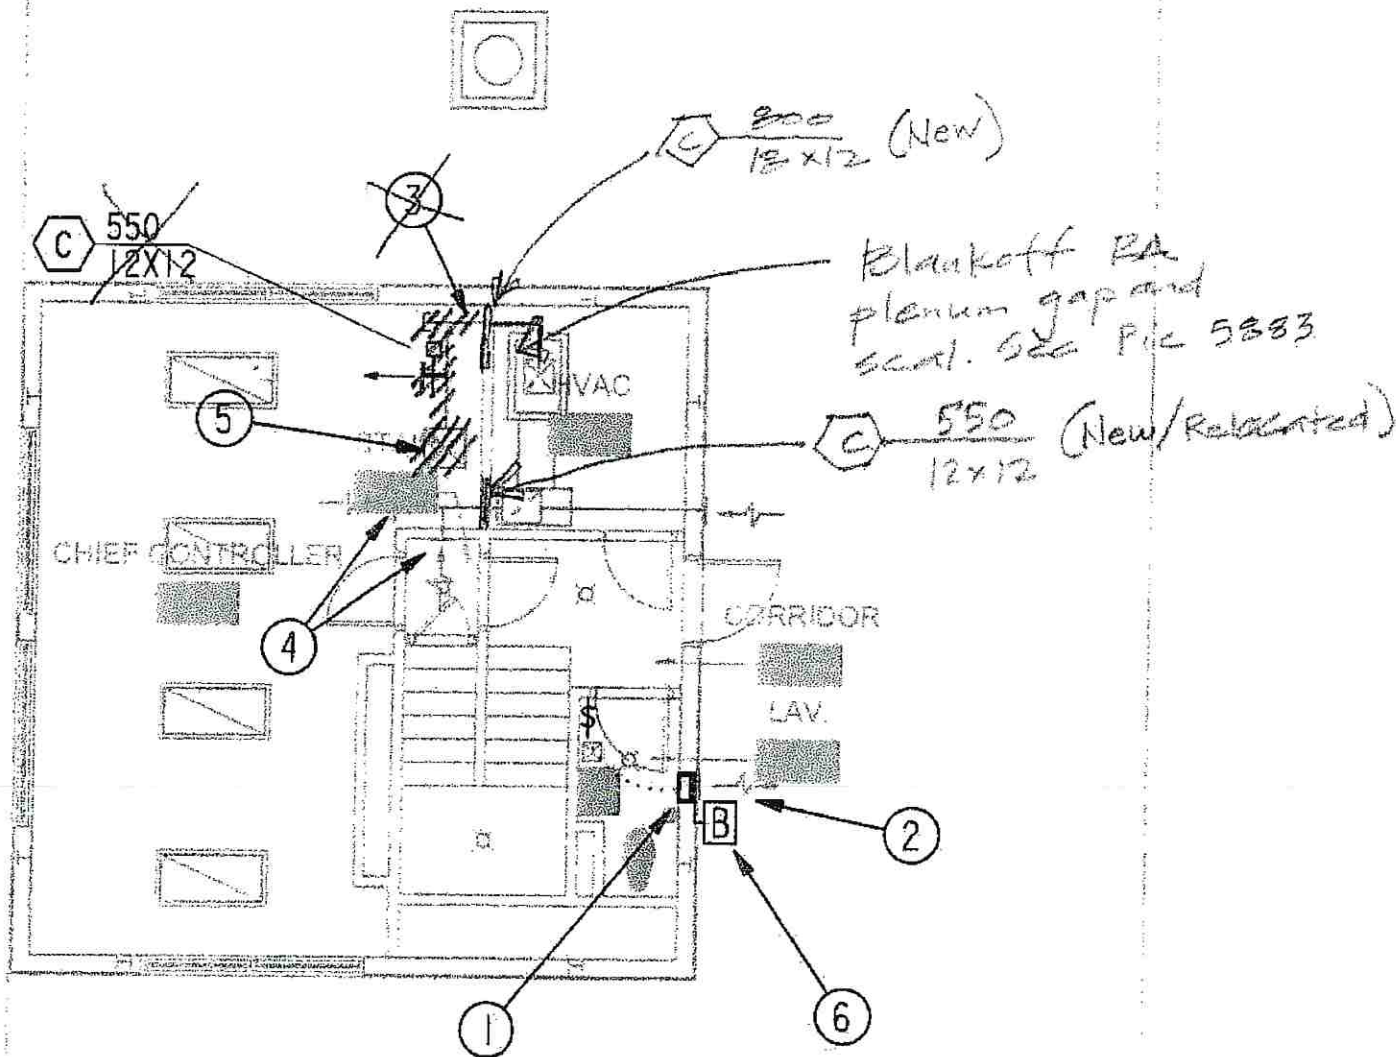 C 800 (New)
18x12
3
C 550
12X12
Blankoff RA
plenum gap and
seal. See Pic 5883
HVAC
5
ST
C 550 (New/Relocated)
12x12
CHIEF CONTROLLER
4
CORRIDOR
LAV.
$
B
2
1
6